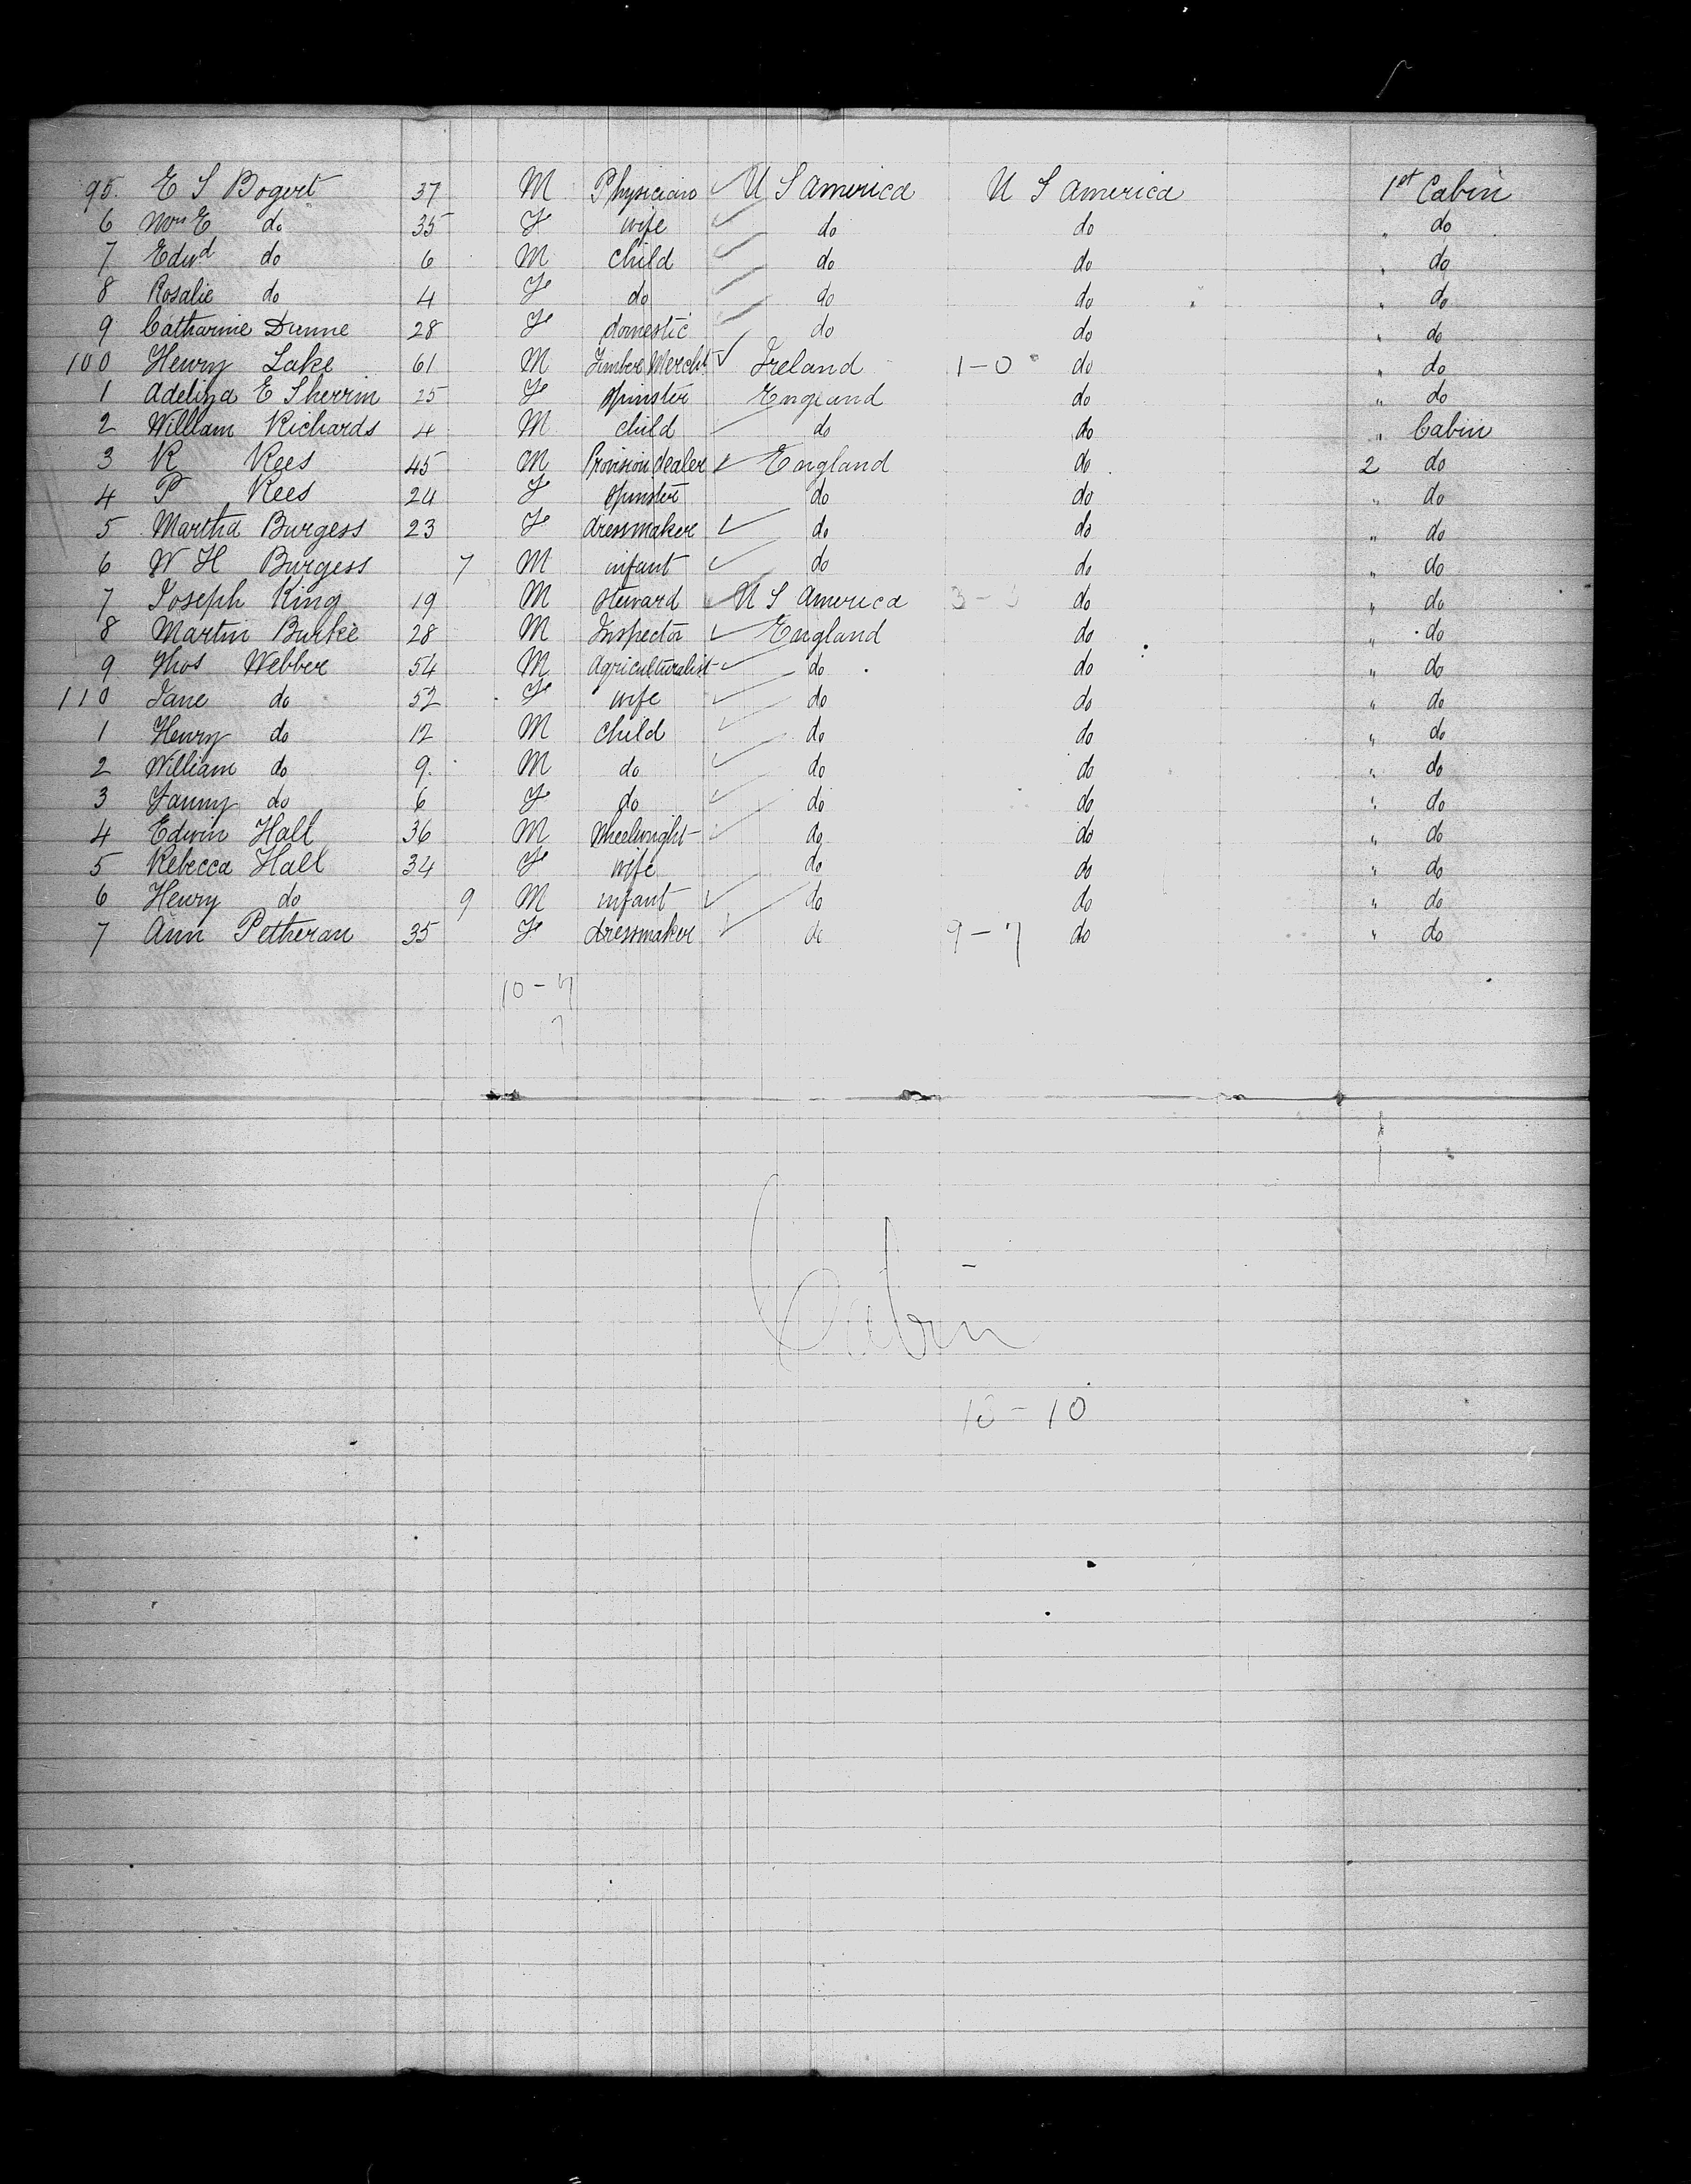 95. E S Bogert 37 M Physician U S America U S America 1st Cabin
6 Mrs E do 35 F wife do do " do
7 Edwd do 6 M child do do " do
8 Rosalie do 4 F do do do " do
9 Catharine Dunne 28 F domestic do do " do
100 Henry Lake 61 M Timber Mercht Ireland 1-0 do " do
1 Adeliza E Sherrin 25 F spinster England do " do
2 William Richards 4 M child do do " Cabin
3 R Rees 45 M Provision dealer England do 2 do
4 P Rees 24 F spinster do do " do
5 Martha Burgess 23 F dressmaker do do " do
6 W H Burgess 7 M infant do do " do
7 Joseph King 19 M steward U S America do " do
8 Martin Burke 28 M Inspector England do " do
9 Thos Webber 54 M Agriculturalist do do " do
110 Jane do 52 F wife do do " do
1 Henry do 12 M child do do " do
2 William do 9 M do do do " do
3 Fanny do 6 F do do do " do
4 Edwin Hall 36 M Wheelwright do do " do
5 Rebecca Hall 34 F wife do do " do
6 Henry do 9 M infant do do " do
7 Ann Petheran 35 F dressmaker do 9-7 do " do
10-7
17
Cabin
10-10